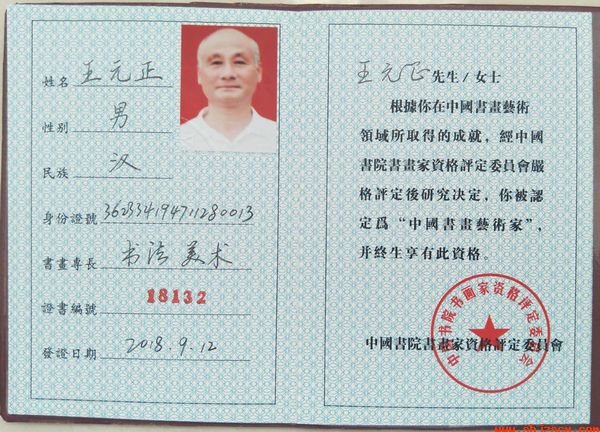 姓名 王元正
性别 男
民族 汉
身份證號
書畫專長 书法 美术
證書編號 18132
發證日期 2018.9.12
王元正 先生/女士
根據你在中國書畫藝術
領域所取得的成就，經中國
書院書畫家資格評定委員會嚴
格評定後研究决定，你被認
定爲“中國書畫藝術家”，
并終生享有此資格。
中國書院書畫家資格評定委員會
中国书院书画家资格评定委员会